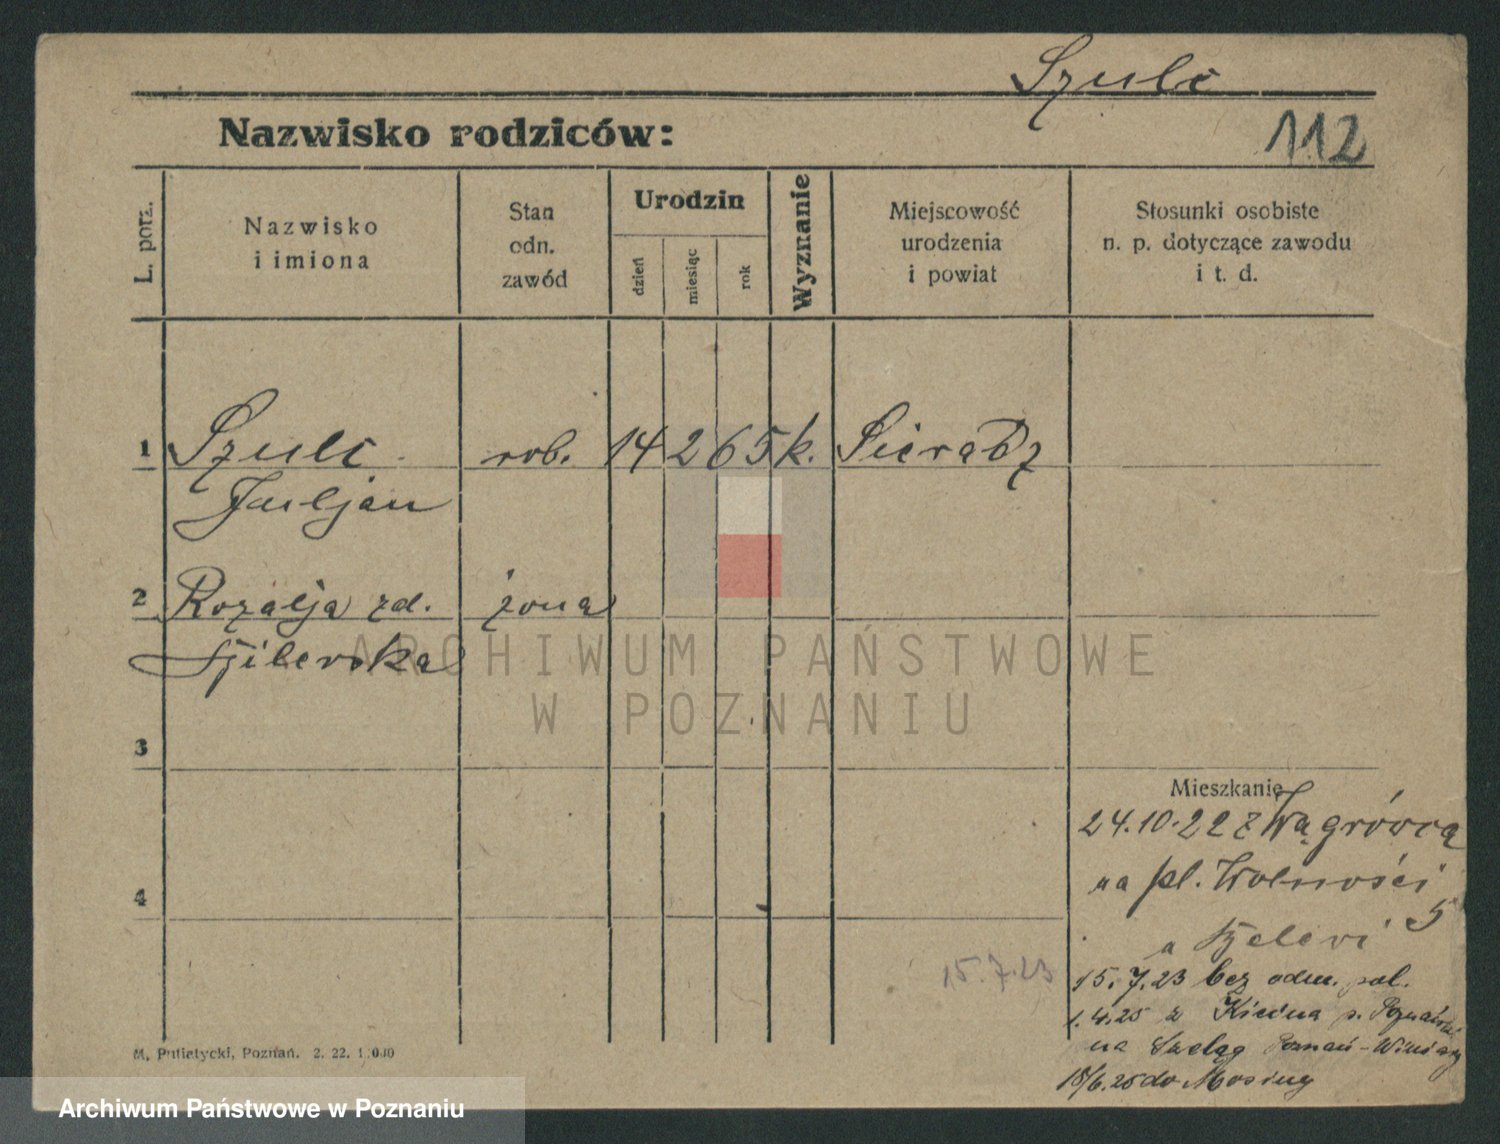 Szulc
Nazwisko rodziców:
112
L. porz.
Nazwisko
i imiona
Stan
odn.
zawód
Urodzin
dzień
miesiąc
rok
Wyznanie
Miejscowość
urodzenia
i powiat
Stosunki osobiste
n. p. dotyczące zawodu
i t. d.
1 Szulc rob. 14 2 65 k. Sieradz
Juljan
2 Rozalja zd. żona
3
Mieszkanie
24.10.22 z Wągrówca
4
na pl. Wolności
5
a
15.7.23
15.7.23 bez odm. pol.
1.4.25 z p.
na Szeląg Poznań-Winiary
18/6.25 do Mosiny
M. Putiatycki, Poznań. 2. 22. 1000
ARCHIWUM PAŃSTWOWE
W POZNANIU
Archiwum Państwowe w Poznaniu